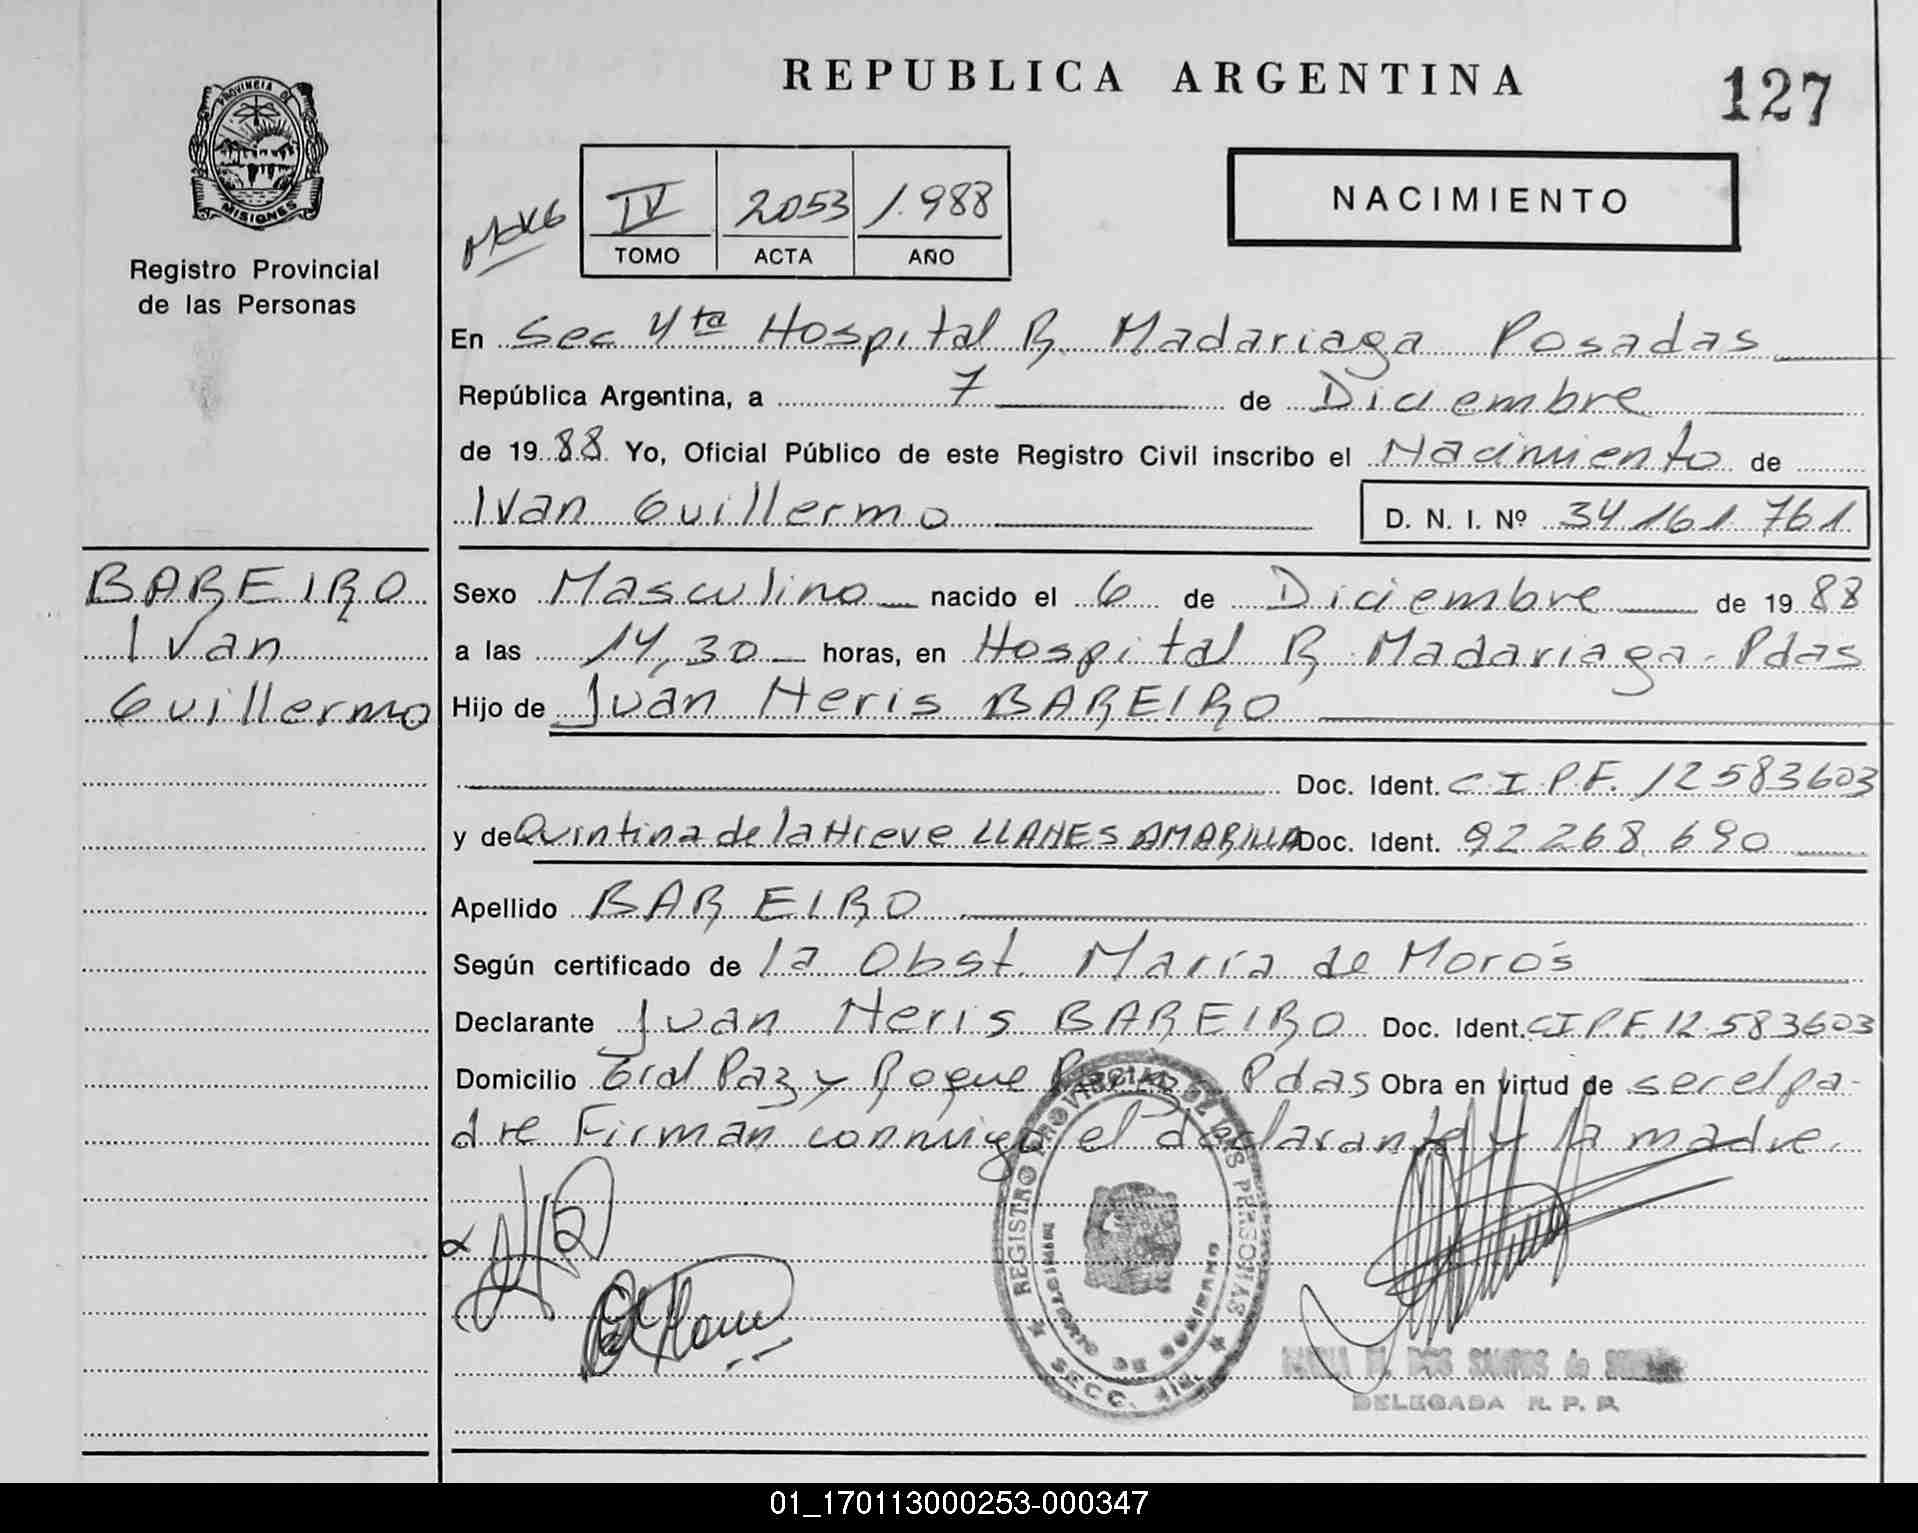 REPUBLICA ARGENTINA
127
PROVINCIA DE
MISIONES
Registro Provincial
de las Personas
IV 2053 1.988
TOMO ACTA AÑO
NACIMIENTO
En Sec 4ta Hospital R. Madariaga Posadas
República Argentina, a 7 de Diciembre
de 1988 Yo, Oficial Público de este Registro Civil inscribo el Nacimiento de
Ivan Guillermo D. N. I. Nº 34.161.761
BAREIRO
Ivan
Guillermo
Sexo Masculino nacido el 6 de Diciembre de 1988
a las 14,30 horas, en Hospital R. Madariaga - Pdas
Hijo de Juan Neris BAREIRO
Doc. Ident. C.I.P.F. 12583603
y de Quintina de la Nieve LLANES AMARILLA Doc. Ident. 92.268.690
Apellido BAREIRO
Según certificado de la Obst. María de Morós
Declarante Juan Neris BAREIRO Doc. Ident. C.I.P.F. 12.583603
Domicilio Gral Paz y Roque Pdas Obra en virtud de ser el pa-
dre Firman conmigo el declarante y la madre.
REGISTRO PROVINCIAL DE LAS PERSONAS
MINISTERIO DE GOBIERNO
SECC. 4ta.
DOS SANTOS de
DELEGADA R. P. P.
01_170113000253-000347